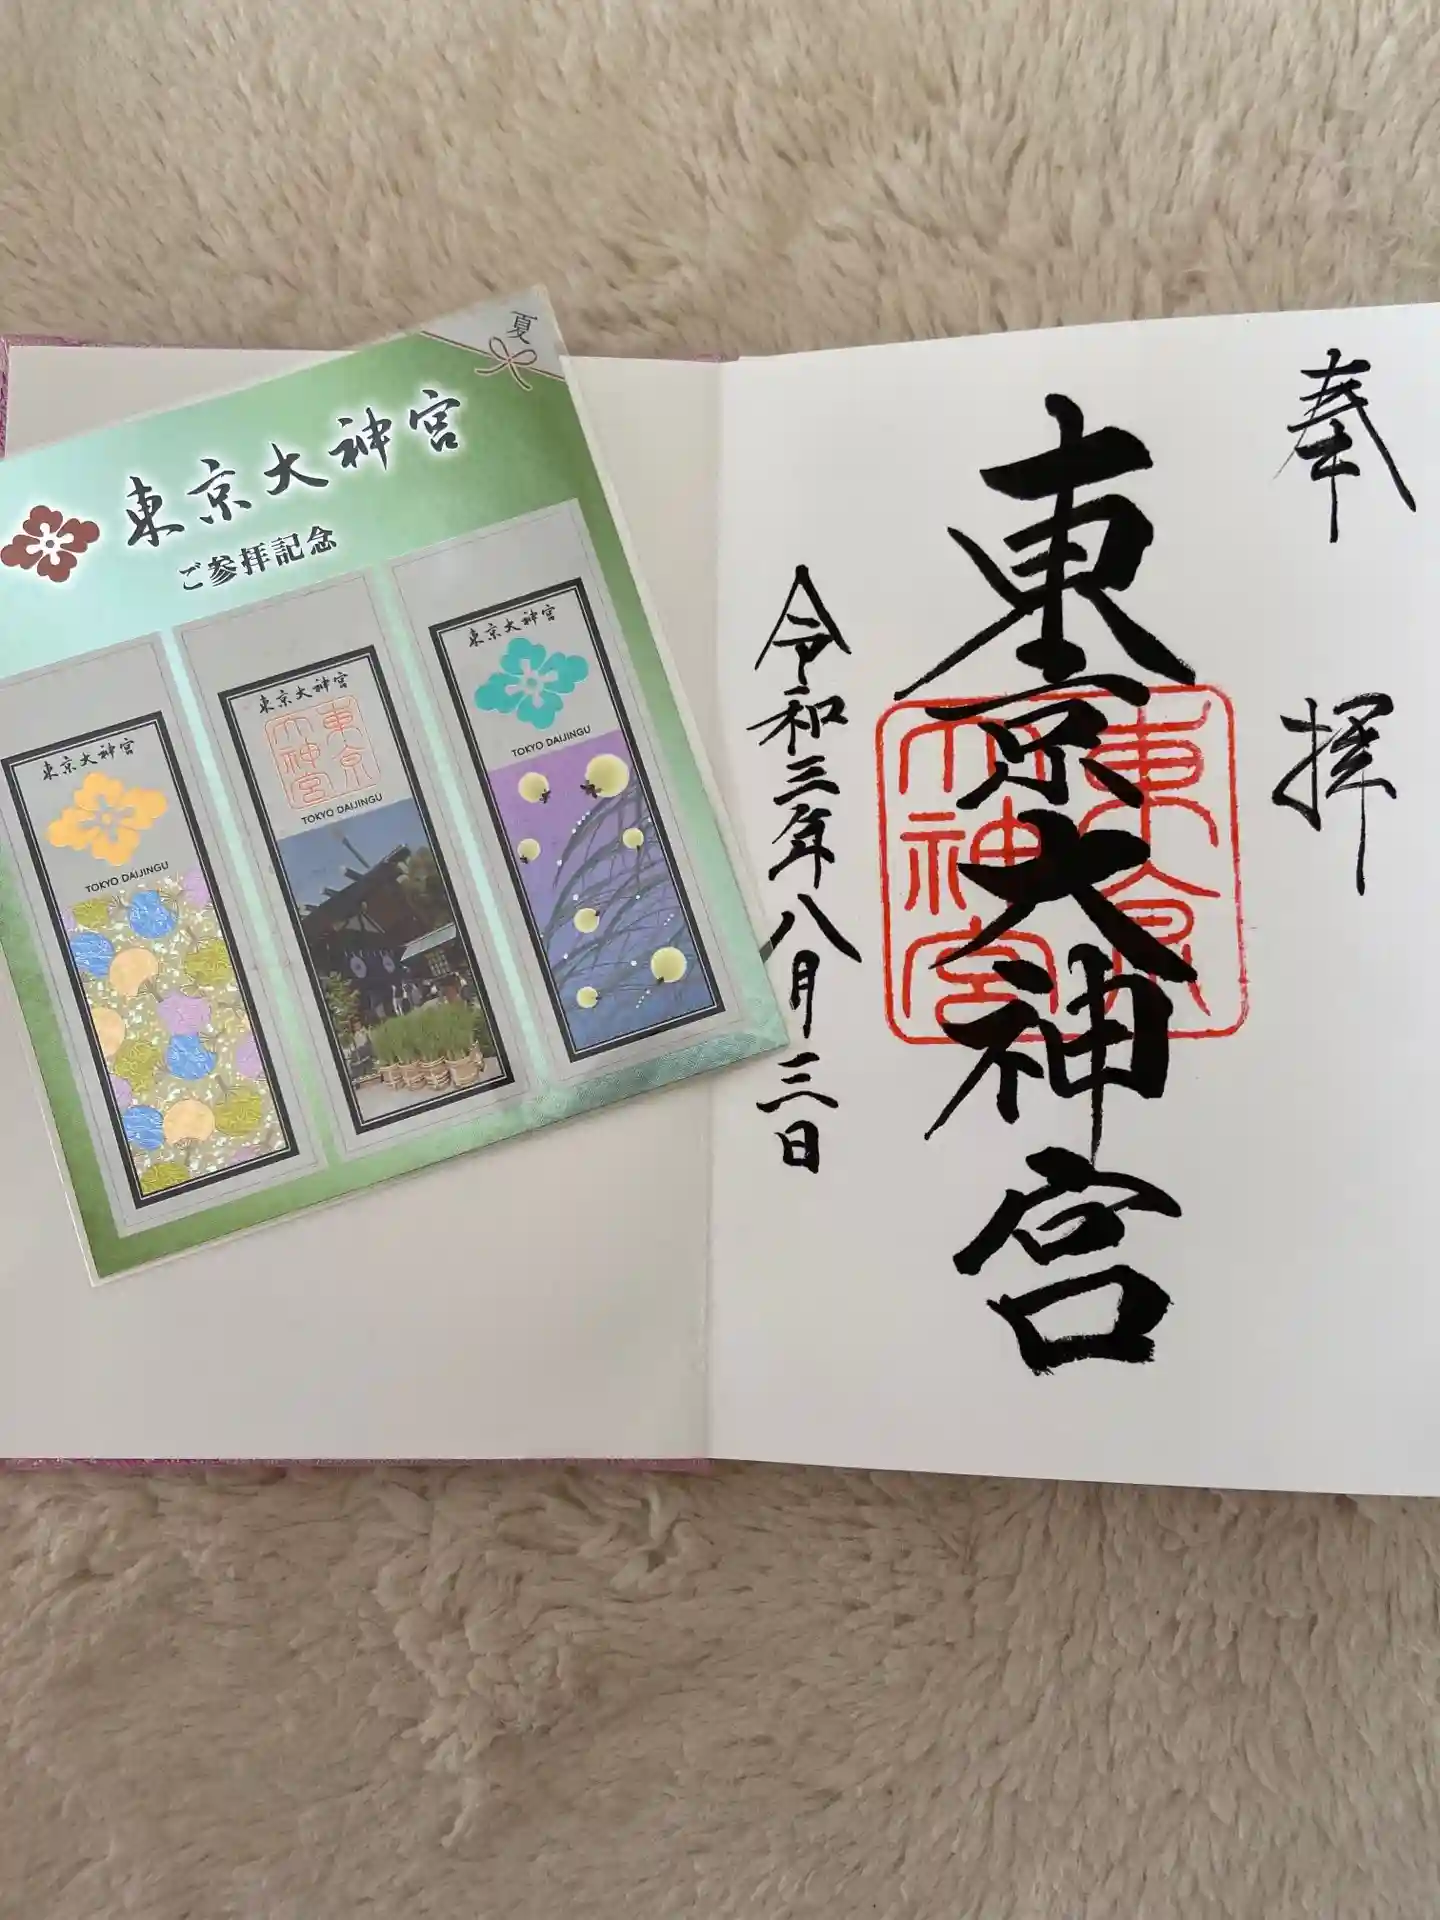 夏
東京大神宮
ご参拝記念
東京大神宮
TOKYO DAIJINGU
東京大神宮
東京
大神宮
TOKYO DAIJINGU
東京大神宮
TOKYO DAIJINGU
奉拝
東京大神宮
東京
大神宮
令和三年八月三日